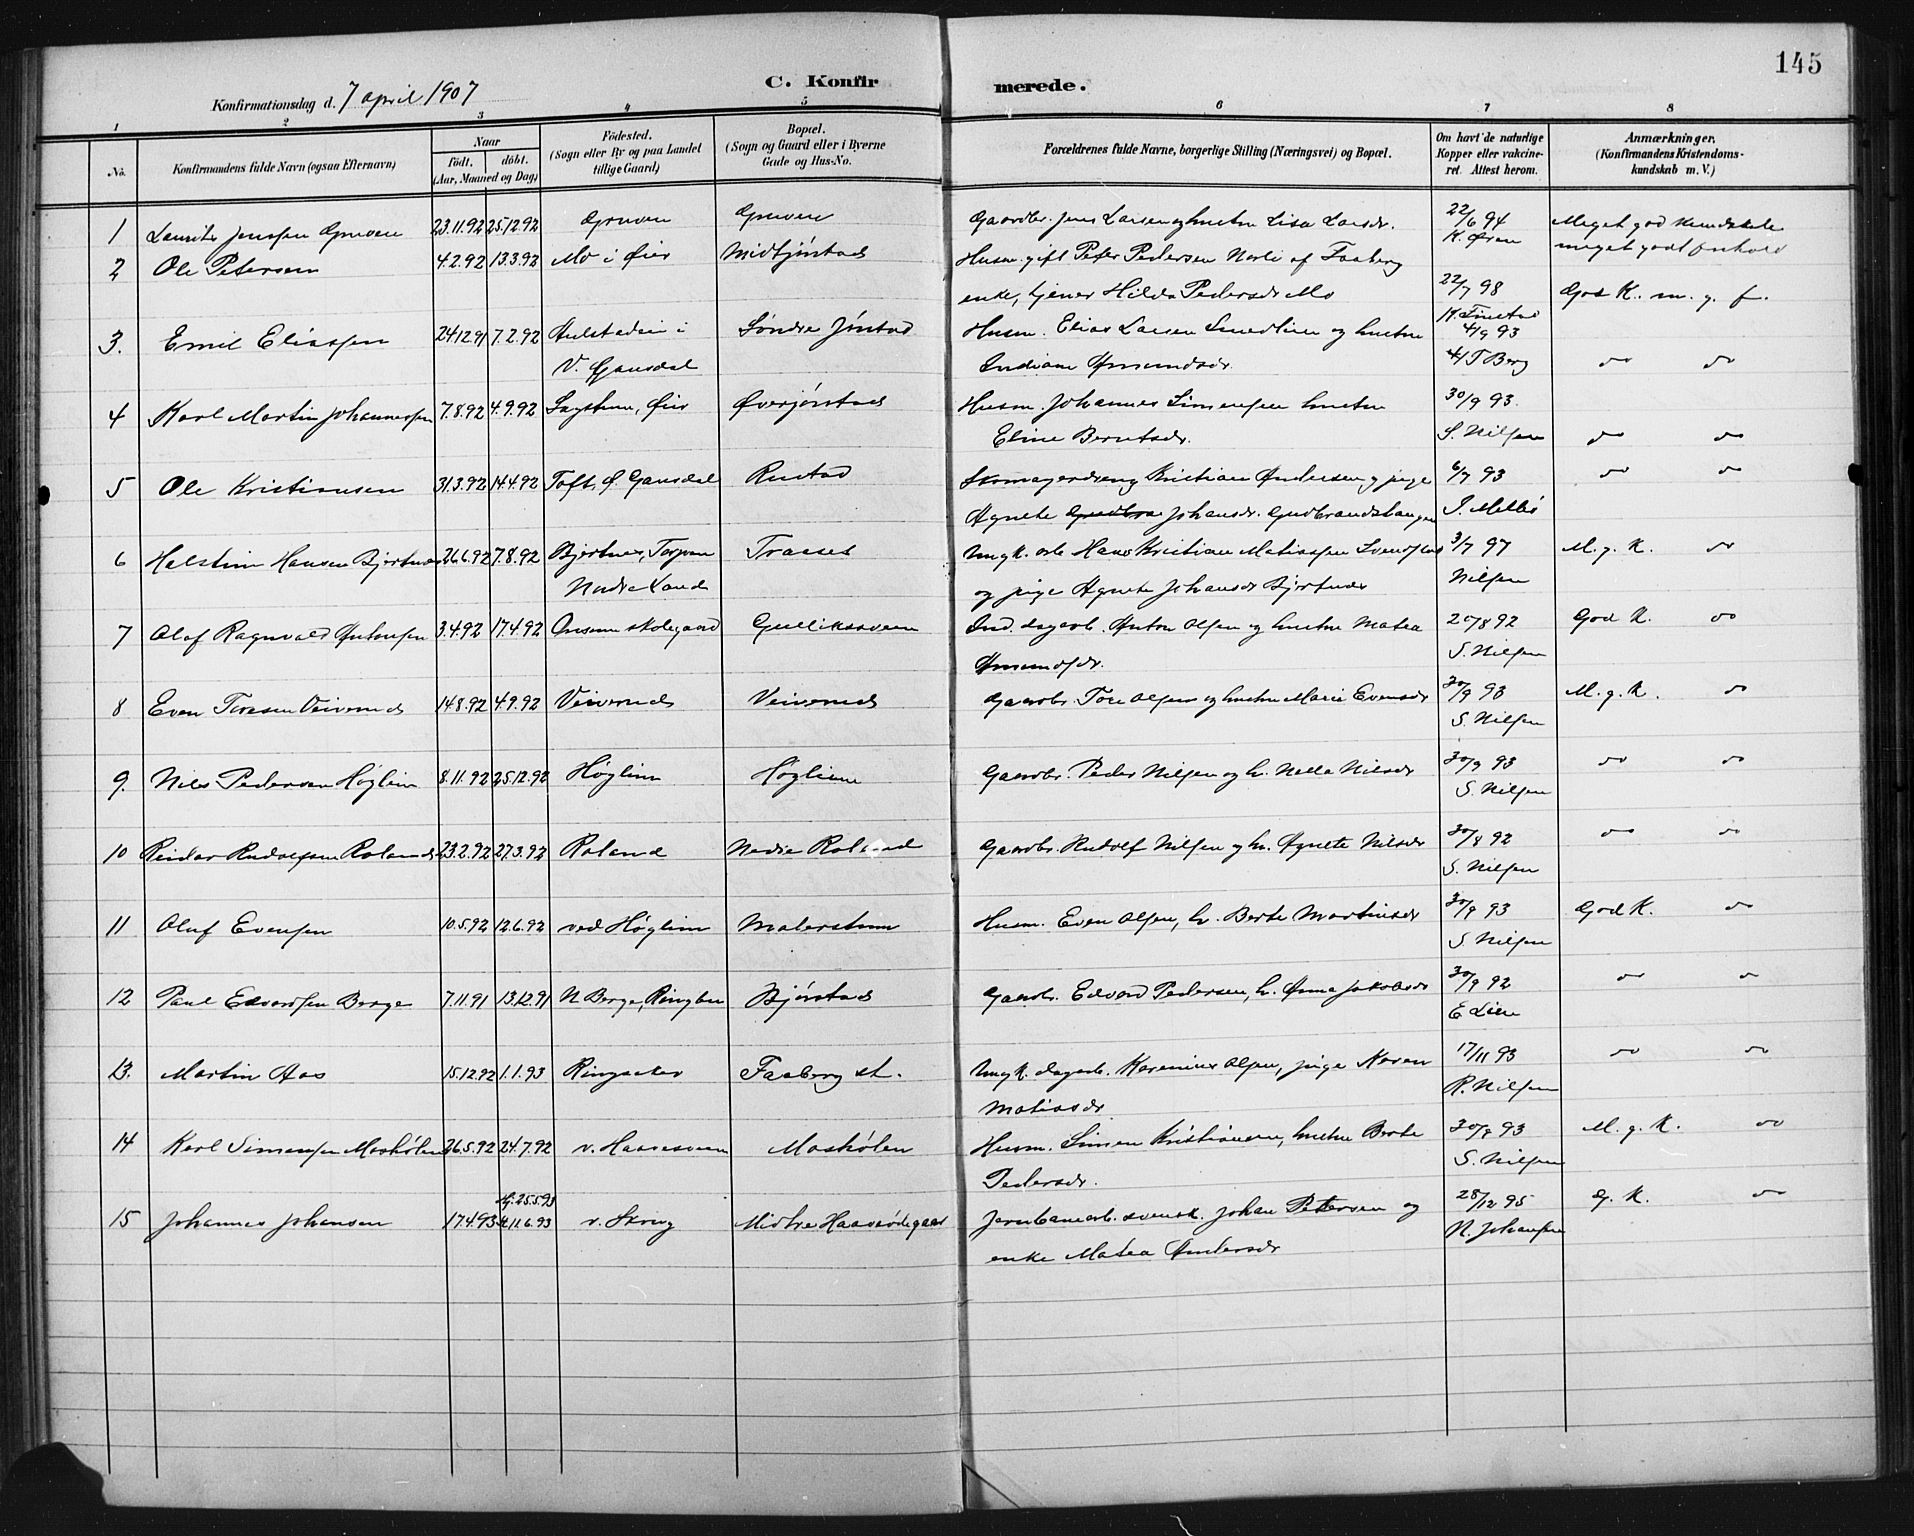 145
C. Konfir merede.
Konfirmationsdag d. 7 april 1907
1 2 3 4 5 6 7 8
No.
Konfirmandens fulde Navn (ogsaa Efternavn)
Naar
født. døbt.
(Aar, Maaned og Dag)
Fødested.
(Sogn eller By og paa Landet
tillige Gaard)
Bopæl.
(Sogn og Gaard eller i Byerne
Gade og Hus-No.
Forældrenes fulde Navne, borgerlige Stilling (Næringsvei) og Bopæl.
Om havt de naturlige
Kopper eller vakcine-
ret. Attest herom.
Anmærkninger,
(Konfirmandens Kristendoms-
kundskab m. V.)
1 Laurits Jenssen Gruven 23.11.92 25.12.92 Gruven Gruven Gaardbr. Jens Larsen og hustru Lisa Larsdr. 22/6 94 Meget god kundskab
K. Øren meget godt forhold
2 Ole Petersen 4.2.92 13.3.92 Mo i Øier Midtjørstad Husm. gift Peter Pedersen Norli af Faaberg
enke, tjener Hilda Pedersdr Mo 22/7 98 God K. m. g. f.
K. Finstad
3. Emil Eliassen 24.12.91 7.2.92 i Søndre Jørstad Husm. Elias Larsen Smedlien og hustru 4/9 93
V. Gausdal Andiane Amundsdr. T Berg " "
4 Karl Martin Johannessen 7.8.92 4.9.92 Sagstuen, Øier Øverjørstad Husm. Johannes Simensen hustru 30/9 93.
Eline Berntsdr. S. Nilsen " "
5 Ole Kristiansen 31.3.92 14.4.92 Toft, Ø. Gausdal Rustad Skomagerdreng Kristian Andersen og pige 6/7 93 " "
Agnete Johansdr. Gudbrandshaugen J. Melbø
6 Halstein Hansen Bjertnes 26.6.92 7.8.92 Bjertnes, Torpen Traaset Ungk. arb. Hans Kristian Matiassen 3/7 97 M. g. K. "
Nordre Land og pige Agnete Johansdr Bjertnes Nilsen
7 Olaf Ragnvald Antonsen 3.4.92 17.4.92 Onsum skolegaard Gullikssveen Ind. dagarb. Anton Olsen og hustru Matea 20/8 92 God K. "
Amundsdr. S. Nilsen
8 Even Toresen Veiverud 14.8.92 4.9.92 Veiverud Veiverud Gaardbr. Tore Olsen og hustru Marie Evensdr 30/9 93 M. g. K. "
S. Nilsen
9. Nils Pedersen Høglien 8.11.92 25.12.92 Høglien Høglien Gaardbr. Peder Nilsen og h. Nella Nilsdr 30/9 93 " "
S. Nilsen
10 Reidar Rudolfsen Roland 23.2.92 27.3.92 Roland Nedre Roland Gaardbr. Rudolf Nilsen og h. Agnete Nilsdr 30/8 92 " "
S. Nilsen
11 Oluf Evensen 10.5.92 12.6.92 ved Høglien Malerstuen Husm. Even Olsen, h. Berte Martinsdr 30/9 93 God K. "
S. Nilsen
12 Paul Edvardsen Berge 7.11.91 13.12.91 N Berge, Ringebu Bjørstad Gaardbr. Edvard Pedersen, h. Anna Jakobsdr 30/9 92 " "
E Lien
13. Martin Aas 15.12.92 1.1.93 Ringsaker Faaberg st. Ungk. dagarb. Karenius Olsen, pige Karen 17/11 93 " "
Matiasdr R. Nilsen
14 Karl Simensen Moshølen 26.5.92 24.7.92 v. Haavesveen Moshølen Husm. Simen Kristiansen, hustru Berte 30/9 93 M. g. K. "
Pedersdr. S. Nilsen
25.5.93
15 Johannes Johansen 17.4.93 11.6.93 v. Skoug Midtre Jernbanearb. svensk. Johan Petersen og 28/12 95 G. K. "
enke Matea Andersdr N. Johansen